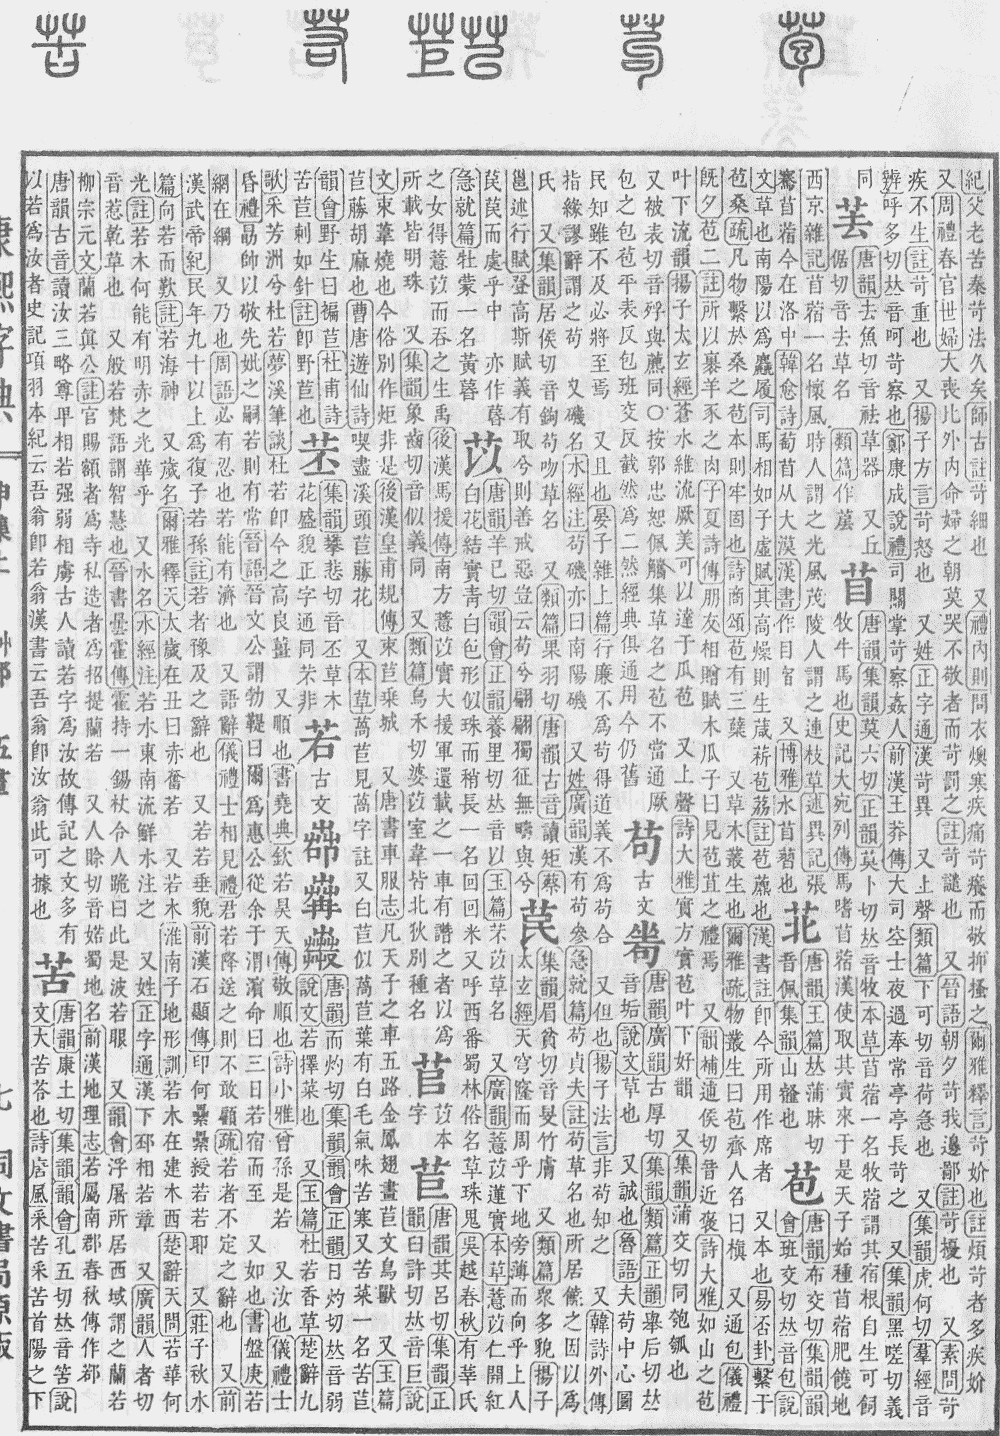 紀父老苦秦苛法久矣師古註苛細也 又禮內則問衣燠寒疾痛苛癢而敬抑搔之爾雅釋言苛妎也註煩苛者多疾妎
又周禮春官世婦大喪比外內命婦之朝莫哭不敬者而苛罰之註苛譴也 又晉語朝夕苛我邊鄙註苛擾也 又素問苛
疾不生註苛重也 又揚子方言苛怒也 又姓正字通漢苛異 又上聲類篇下可切音荷急也 又集韻虎何切羣經音
辨呼多切𠀤音呵苛察也鄭康成說禮司關掌苛察姦人前漢王莽傳大司空士夜過奉常亭亭長苛之 又集韻黑嗟切義
同 唐韻去魚切音袪草器 又丘 苜 唐韻集韻莫六切正韻莫卜切𠀤音牧本草苜蓿一名牧蓿謂其宿根自生可飼
倨切音去草名 類篇作 牧牛馬也史記大宛列傳馬嗜苜蓿漢使取其實來于是天子始種苜蓿肥饒地
西京雜記苜蓿一名懷風時人謂之光風茂陵人謂之連枝草述異記張 唐韻玉篇𠀤蒲昧切 苞 唐韻布交切集韻韻
騫苜蓿今在洛中韓愈詩萄苜从大漠漢書作目宿 又博雅水苜也 音佩集韻山也 會班交切𠀤音包說
文草也南陽以爲麤履司馬相如子虛賦其高燥則生葴菥苞荔註苞藨也漢書註卽今所用作席者 又本也易否卦繫于
苞桑疏凡物繫於桑之苞本則牢固也詩商頌苞有三蘖 又草木叢生也爾雅疏物叢生曰苞齊人名曰稹 又通包儀禮
旣夕苞二註所以裹羊豕之肉子夏詩傳朋友相贈賦木瓜子曰見苞苴之禮焉 又韻補逋侯切音近裒詩大雅如山之苞
叶下流韻揚子太玄經蒼木維流厥美可以達于瓜苞 又上聲詩大雅實方實苞叶下好韻 又集韻蒲交切同匏瓠也
又被表切音殍與藨同○按郭忠恕佩觿集草名之苞不當通厥 苟 古文 唐韻廣韻古厚切集韻類篇正韻舉后切𠀤
包之包苞平表反包班交反截然爲二然經典俱通用今仍舊 音垢說文草也 又誠也魯語夫苟中心圖
民知雖不及必將至焉 又且也晏子雜上篇行廉不爲苟得道義不爲苟合 又但也揚子法言非苟知之 又韓詩外傳
指緣謬辭謂之苟 又磯名水經注苟磯亦曰南陽磯 又姓廣韻漢有苟參急就篇苟貞夫註苟草名也所居饒之因以爲
氏 又集韻居侯切音鉤苟吻草名 又類篇果羽切唐韻古音讀矩蔡 苠 集韻眉貧切音旻竹膚 又類篇衆多貌揚子
邕述行賦登高斯賦義有取兮則善戒惡豈云苟兮翩翩獨征無疇與兮 太玄經天穹窿而周乎下地旁薄而向乎上人
苠苠而處乎中 亦作暋 苡 唐韻羊已切韻會正韻養里切𠀤音以玉篇芣苡草名 又廣韻薏苡蓮實本草薏苡仁開紅
急就篇牡蒙一名黃昏 白花結實靑白色形似珠而稍長一名回回米又呼西番蜀林俗名草珠吳越春秋有莘氏
之女得薏苡而吞之生禹後漢馬援傳南方薏苡實大援軍還載之一車有譖之者以爲 苢 苡本 苣 唐韻其呂切集韻正
所載皆明珠 又集韻象齒切音似義同 又類篇烏禾切婆苡室韋皆北狄別種名 字 韻臼許切𠀤音巨說
文束葦燒也今俗別作炬非是後漢皇甫規傳束苣乗城 又唐書車服志凡天子之車五路金鳳翅畫苣文鳥獸 又玉篇
苣藤胡麻也曹唐遊仙詩喫盡溪頭苣藤花 又本草萵苣見萵字註又白苣似萵苣葉有白毛氣味苦寒又苦菜一名苦苣
韻會野生曰褊苣杜甫詩 苤 集韻攀悲切音丕草木 若 古文 唐韻而灼切集韻韻會正韻日灼切𠀤音弱
苦苣刺如針註卽野苣也 花盛貌正字通同芣非 說文若擇菜也 又玉篇杜若香草楚辭九
歌采芳洲兮杜若夢溪筆談杜若卽今之高良薑 又順也書堯典欽若昊天傳敬順也詩小雅曾孫是若 又汝也儀禮士
昏禮勗帥以敬先妣之嗣若則有常晉語晉文公謂勃鞮曰爾爲惠公從余于渭濱命曰三日若宿而至 又如也書盤庚若
網在綱 又乃也周語必有忍也若能有濟也 又語辭儀禮士相見禮君若降送之則不敢顧疏若者不定之辭也 又前
漢武帝紀民年九十以上爲復子若孫註若者豫及之辭也 又若若垂貌前漢石顯傳印何纍纍綬若若耶 又莊子秋水
篇向若而歎註若海神 又歲名爾雅釋天太歲在丑曰赤奮若 又若木淮南子地形訓若木在建木西楚辭天問若華何
光註若木何能有明赤之光華乎 又水名水經注若水東南流鮮水注之 又姓正字通漢下邳相若章 又廣韻人者切
音惹乾草也 又般若梵語謂智慧也晉書曇霍傳霍持一錫杖令人跪曰此是波若眼 又韻會浮屠所居西域謂之蘭若
柳宗元文蘭若眞公註官賜額者爲寺私造者爲招提蘭若 又人賒切音婼蜀地名前漢地理志若屬南郡春秋傳作鄀
唐韻古音讀汝三略尊𤰞相若强弱相虜古人讀若字爲汝故傳記之文多有 苦 唐韻康土切集韻韻會孔五切𠀤音筈說
以若爲汝者史記項羽本紀云吾翁卽若翁漢書云吾翁卽汝翁此可據也 文大苦苓也詩唐風采苦采苦首陽之下
康熙字典 申集上 艸部 五畫 七 同文書局原版